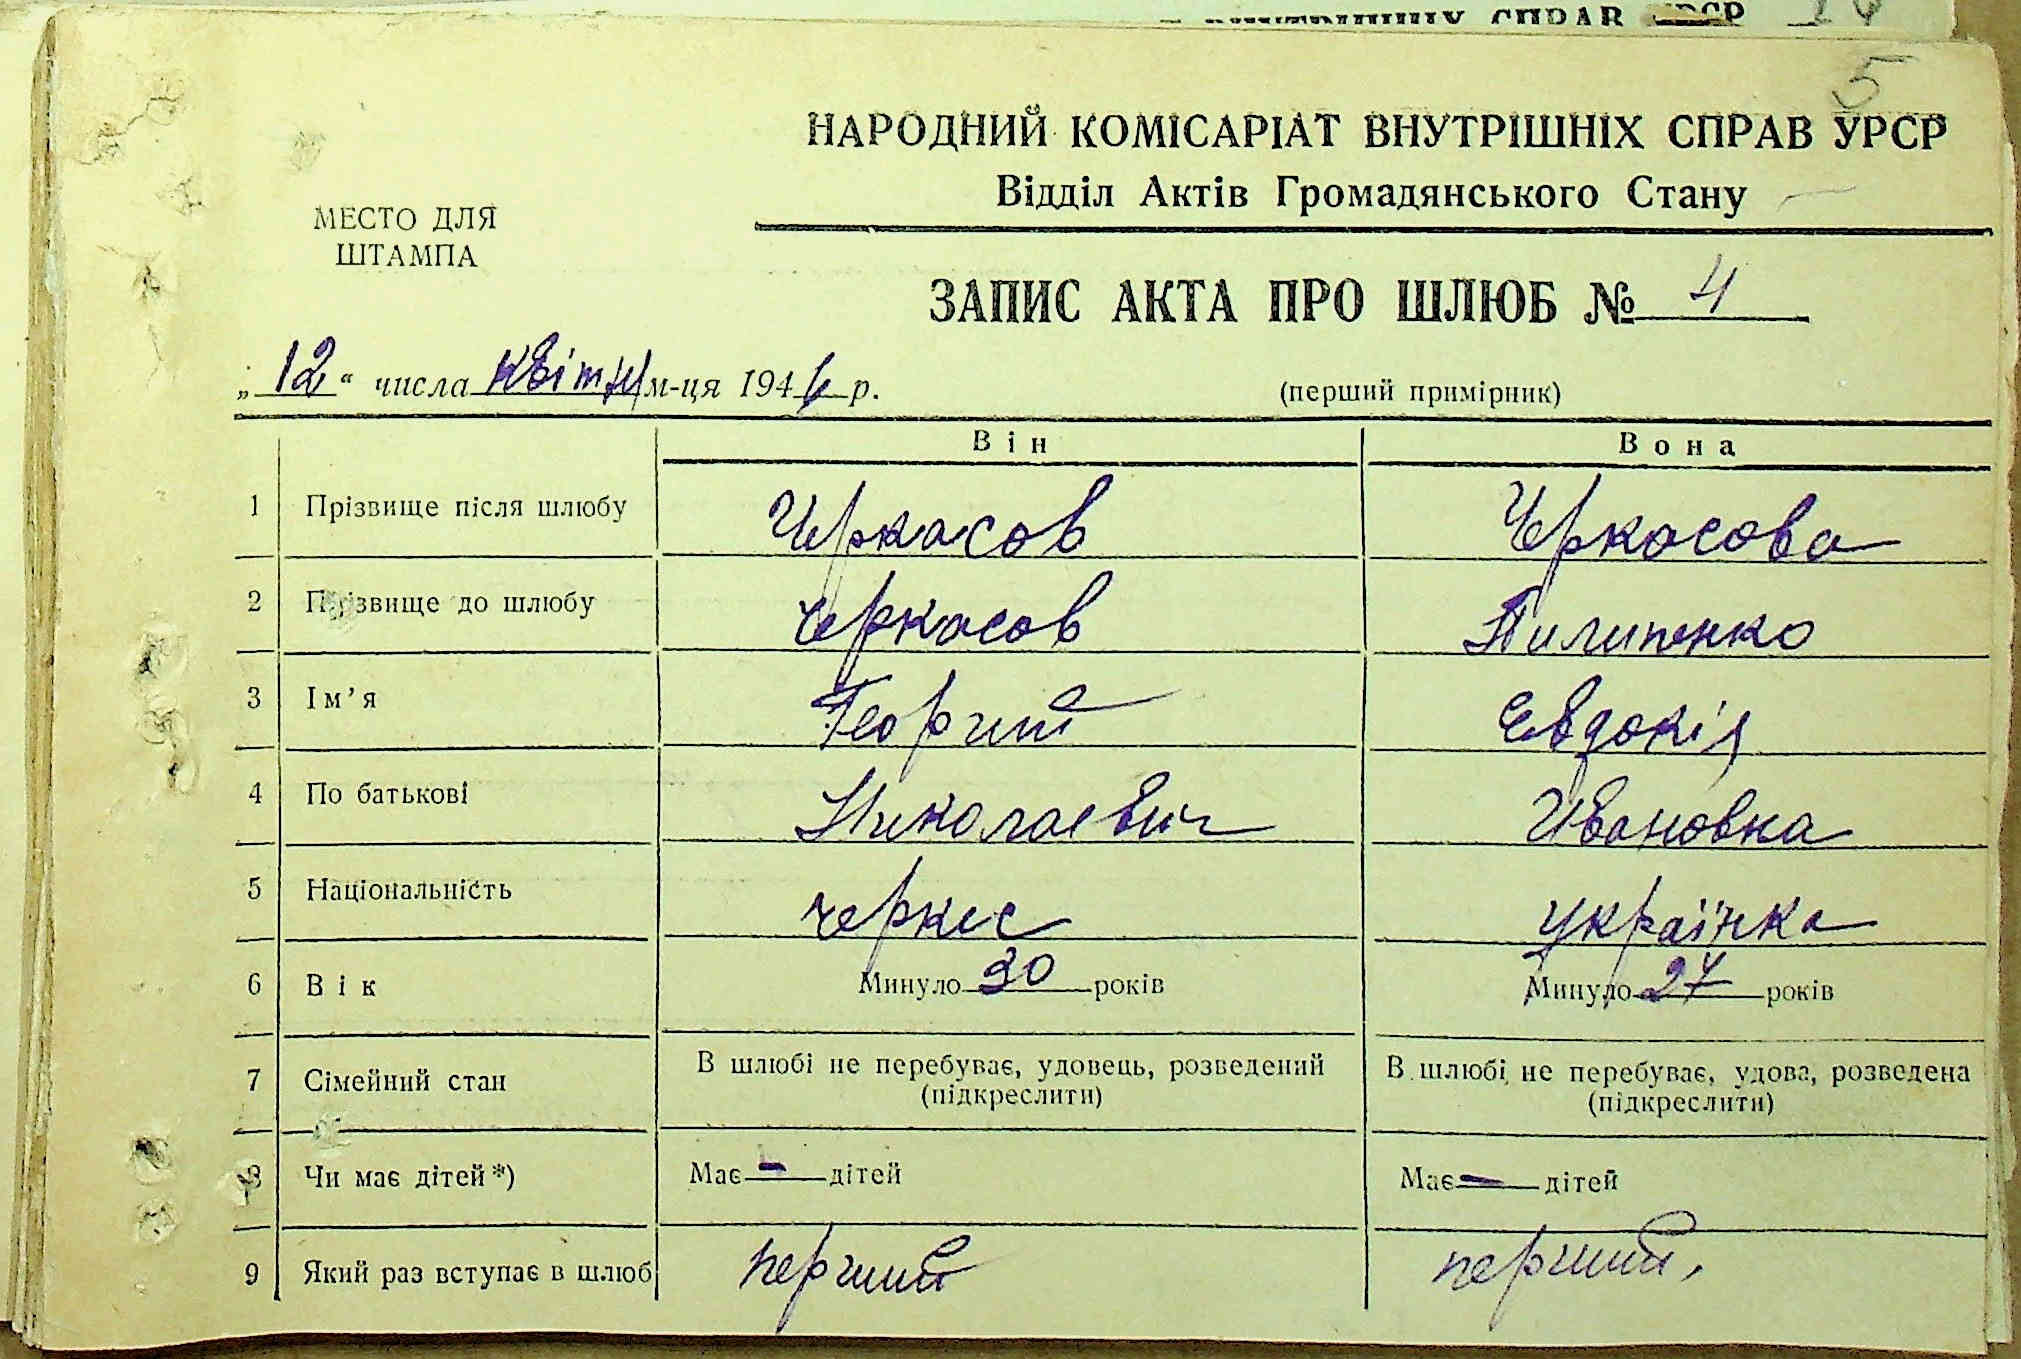 СПРАВ УРСР
5
НАРОДНИЙ КОМІСАРІАТ ВНУТРІШНІХ СПРАВ УРСР
Відділ Актів Громадянського Стану
МЕСТО ДЛЯ
ШТАМПА
ЗАПИС АКТА ПРО ШЛЮБ № 4
„12“ числа квітня м-ця 194 р.
(перший примірник)
Він Вона
1 Прізвище після шлюбу Черкасов Черкасова
2 Прізвище до шлюбу Черкасов Пилипенко
3 Ім'я Георгий Евдокія
4 По батькові Николаевич Ивановка
5 Національність черкес українка
6 Вік Минуло 30 років Минуло 27 років
7 Сімейний стан В шлюбі не перебуває, удовець, розведений В шлюбі не перебуває, удова, розведена
(підкреслити) (підкреслити)
8 Чи має дітей*) Має – дітей Має – дітей
9 Який раз вступає в шлюб перший перший.